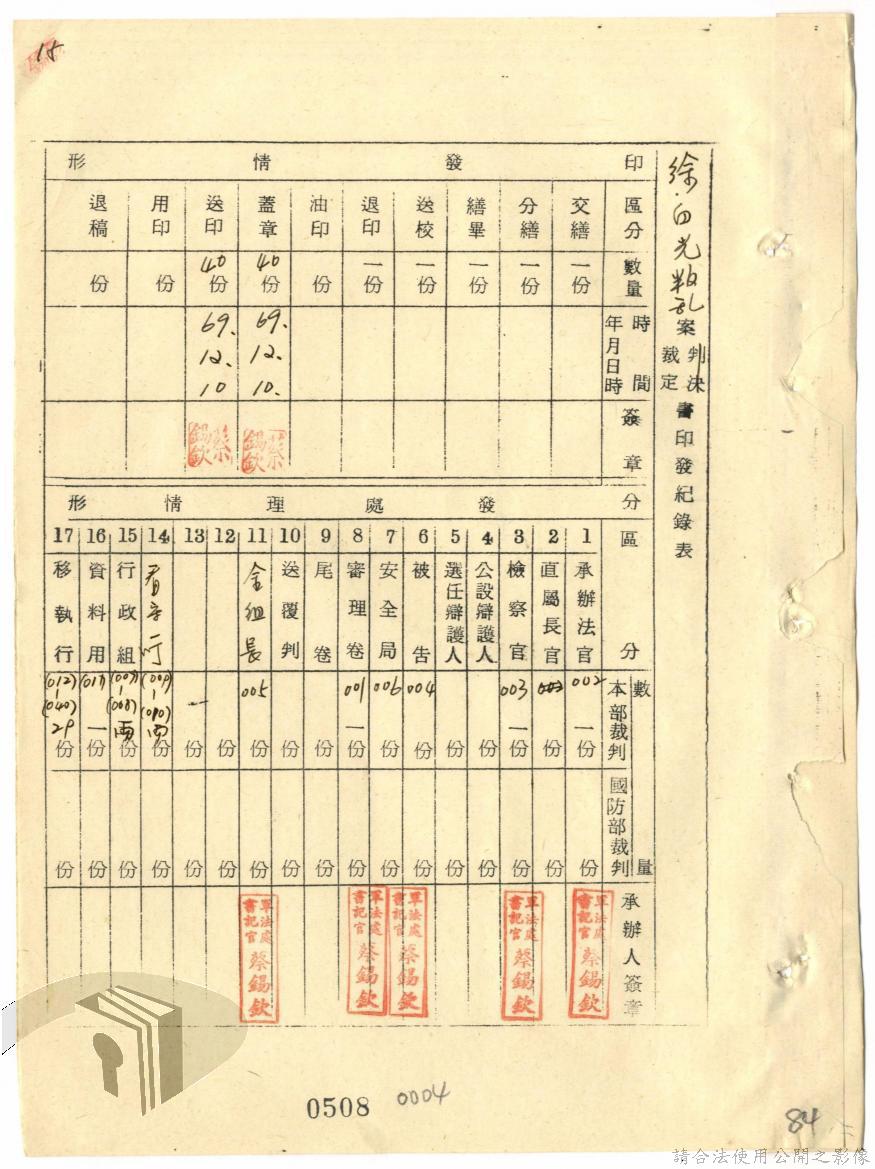 18
徐白光叛乱案判決裁定書印發紀錄表
印發情形
區分
交繕
分繕
繕畢
送校
退印
油印
蓋章
送印
用印
退稿
數量
一份
一份
份
份
一份
份
40份
40份
份
份
時間
年月日時
69.12.10.
69.12.10
簽章
蔡錫欽
蔡錫欽
分發處理情形
區分
1 承辦法官
2 直屬長官
3 檢察官
4 公設辯護人
5 選任辯護人
6 被告
7 安全局
8 審理卷
9 尾卷
10 送覆判
11 金組長
12
13
14 看守所
15 行政組
16 資料用
17 移執行
數量
本部裁判
002 一份
002 份
003 一份
份
份
004 份
006 份
001 一份
份
份
005 份
份
份
(009)-(010) 兩份
(007)-(008) 兩份
(011) 一份
(012)-(040) 29份
國防部裁判
份 份 份 份 份 份 份 份 份 份 份 份 份 份 份 份 份
承辦人簽章
軍法處書記官蔡錫欽
軍法處書記官蔡錫欽
軍法處書記官蔡錫欽
軍法處書記官蔡錫欽
軍法處書記官蔡錫欽
0508
0004
84
請合法使用公開之影像